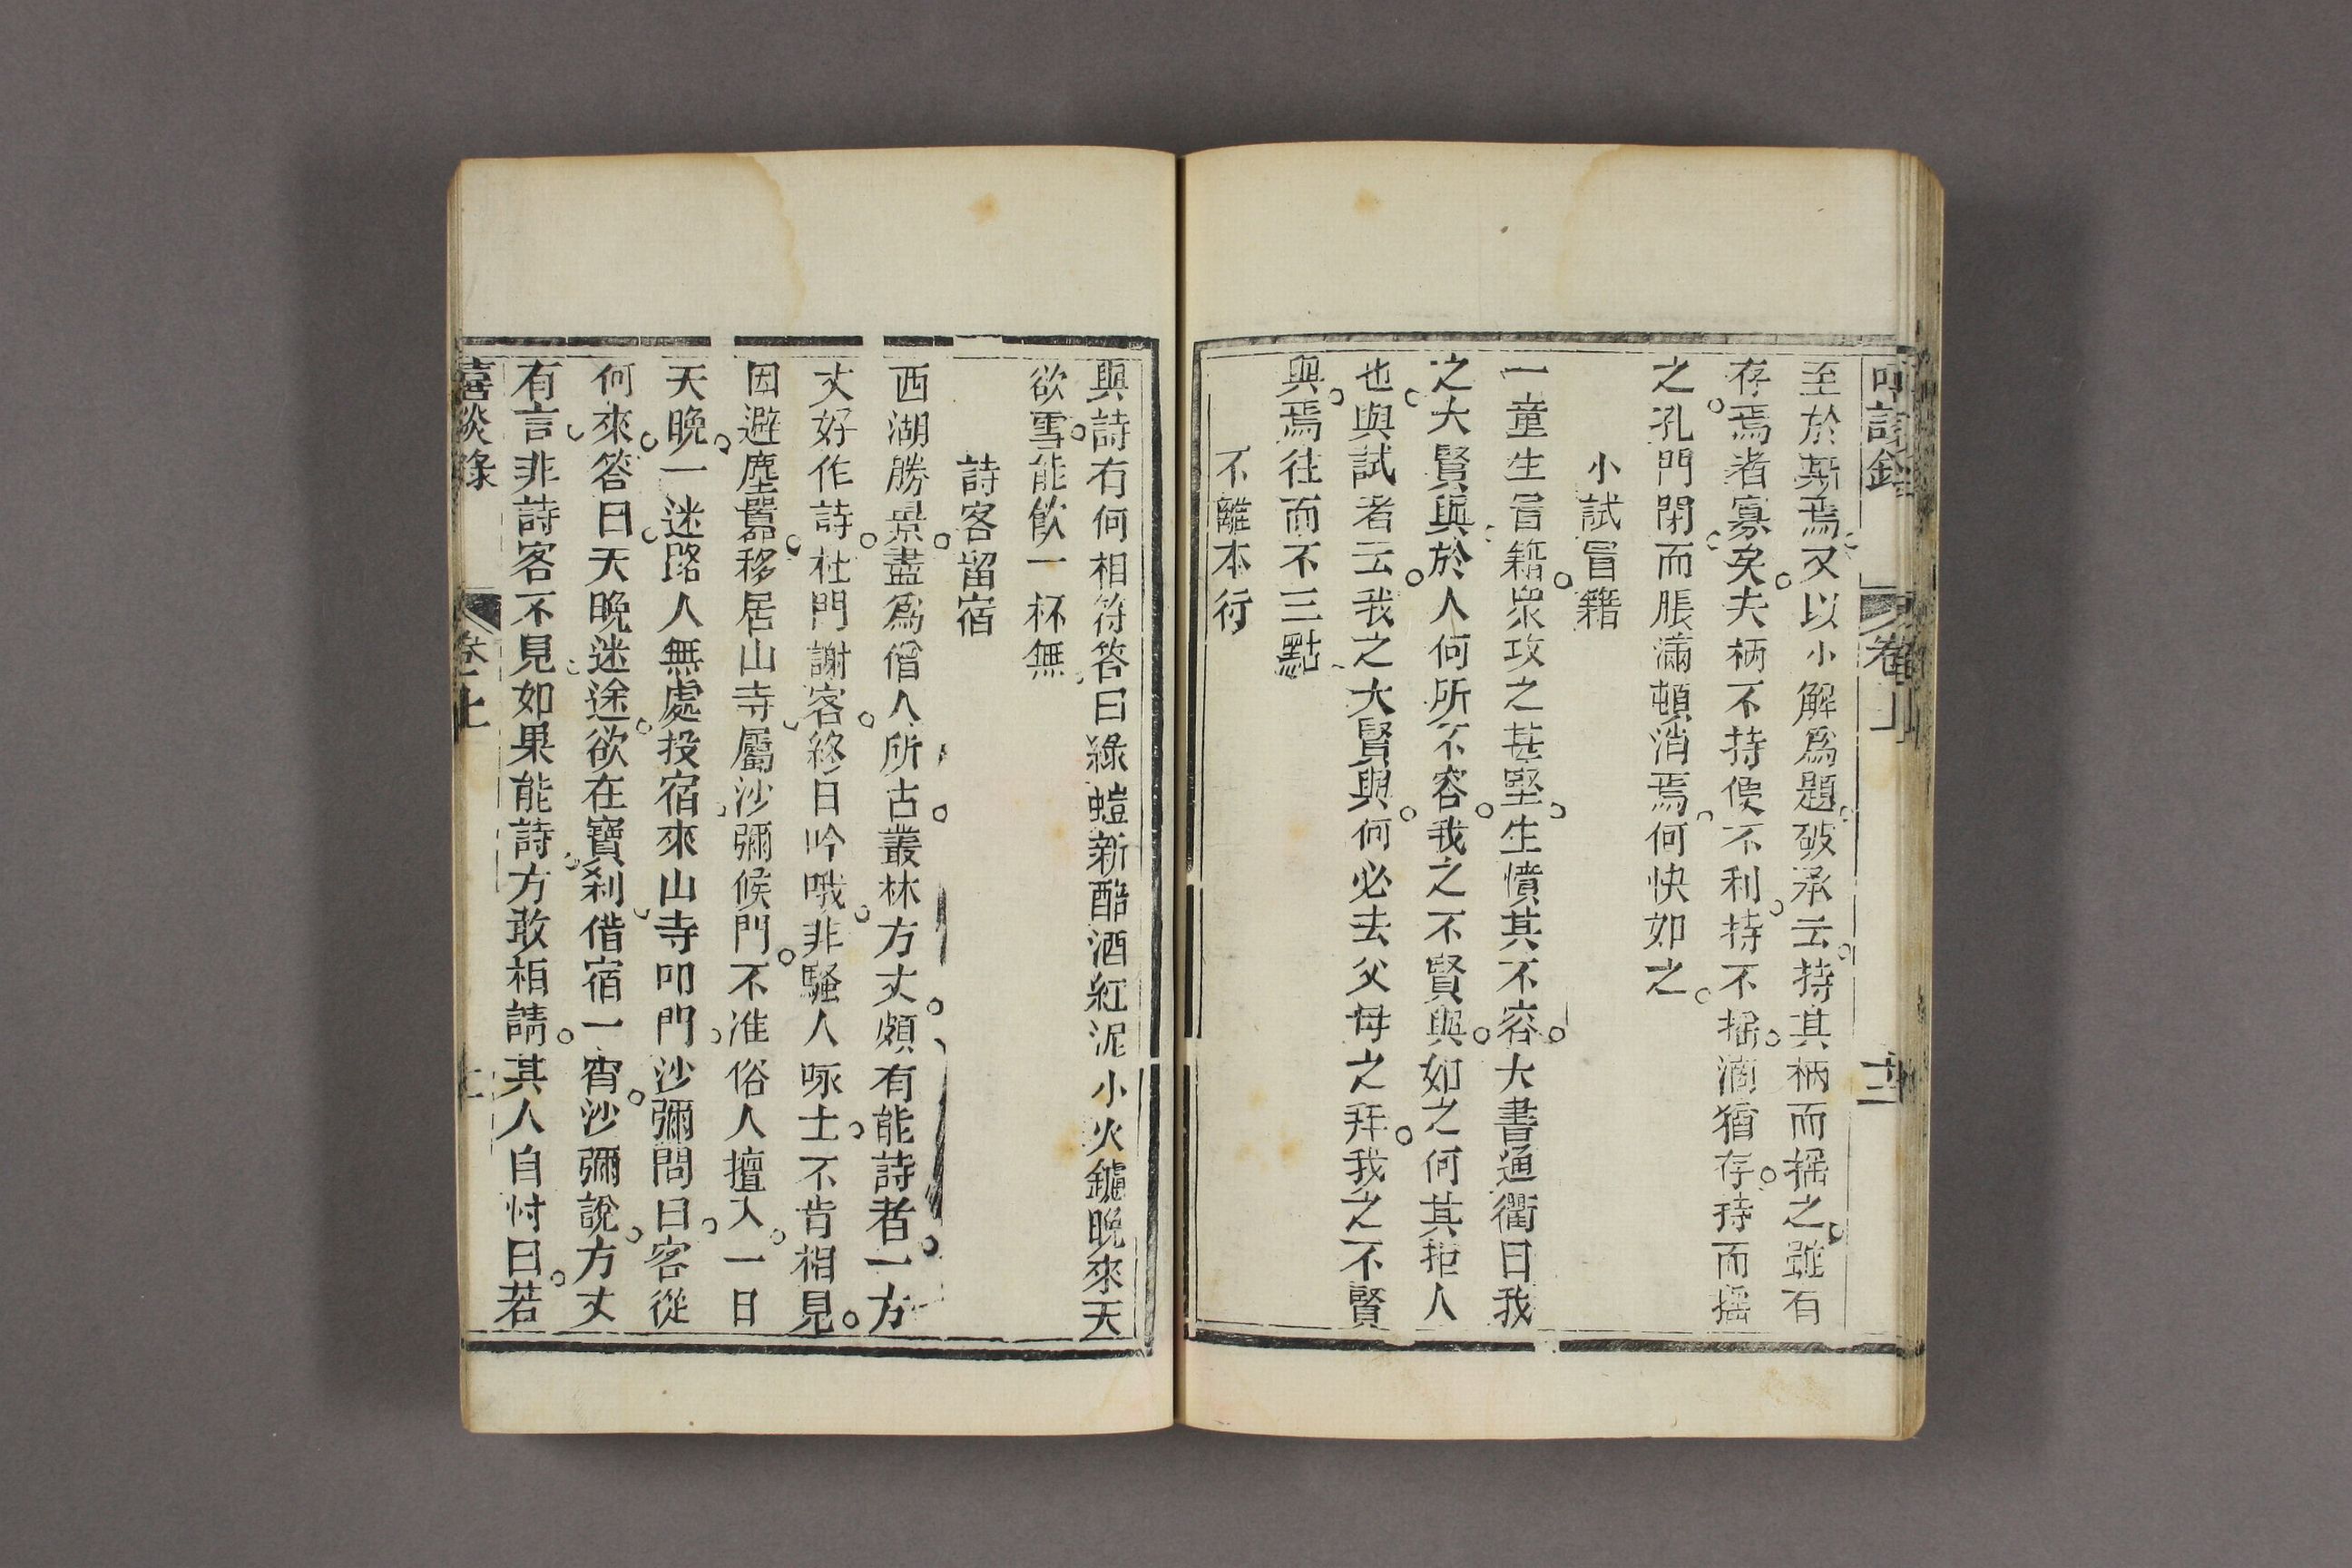 至於斯焉又以小解爲題破承云持其柄而搖之雖有
存焉者寡矣夫柄不持便不利持不搖滴猶存持而搖
之孔門閉而脹滿頓消焉何快如之
小試冒籍
一童生冒籍衆攻之甚堅生憤其不容大書通衢曰我
之大賢與於人何所不容我之不賢與如之何其拒人
也與試者云我之大賢與何必去父母之拜我之不賢
與焉往而不三黜
不離本行
與詩有何相符答曰綠螘新醅酒紅泥小火鑪晚來天
欲雪能飲一杯無
詩客留宿
西湖勝景盡爲僧人所古叢林方丈頗有能詩者一方
丈好作詩杜門謝客終日吟哦非騷人啄士不肯相見
因避塵囂移居山寺屬沙彌候門不准俗人擅入一日
天晚一迷路人無處投宿來山寺叩門沙彌問曰客從
何來答曰天晚迷途欲在寶剎借宿一宵沙彌說方丈
有言非詩客不見如果能詩方敢相請其人自忖曰若
喜談錄 卷上